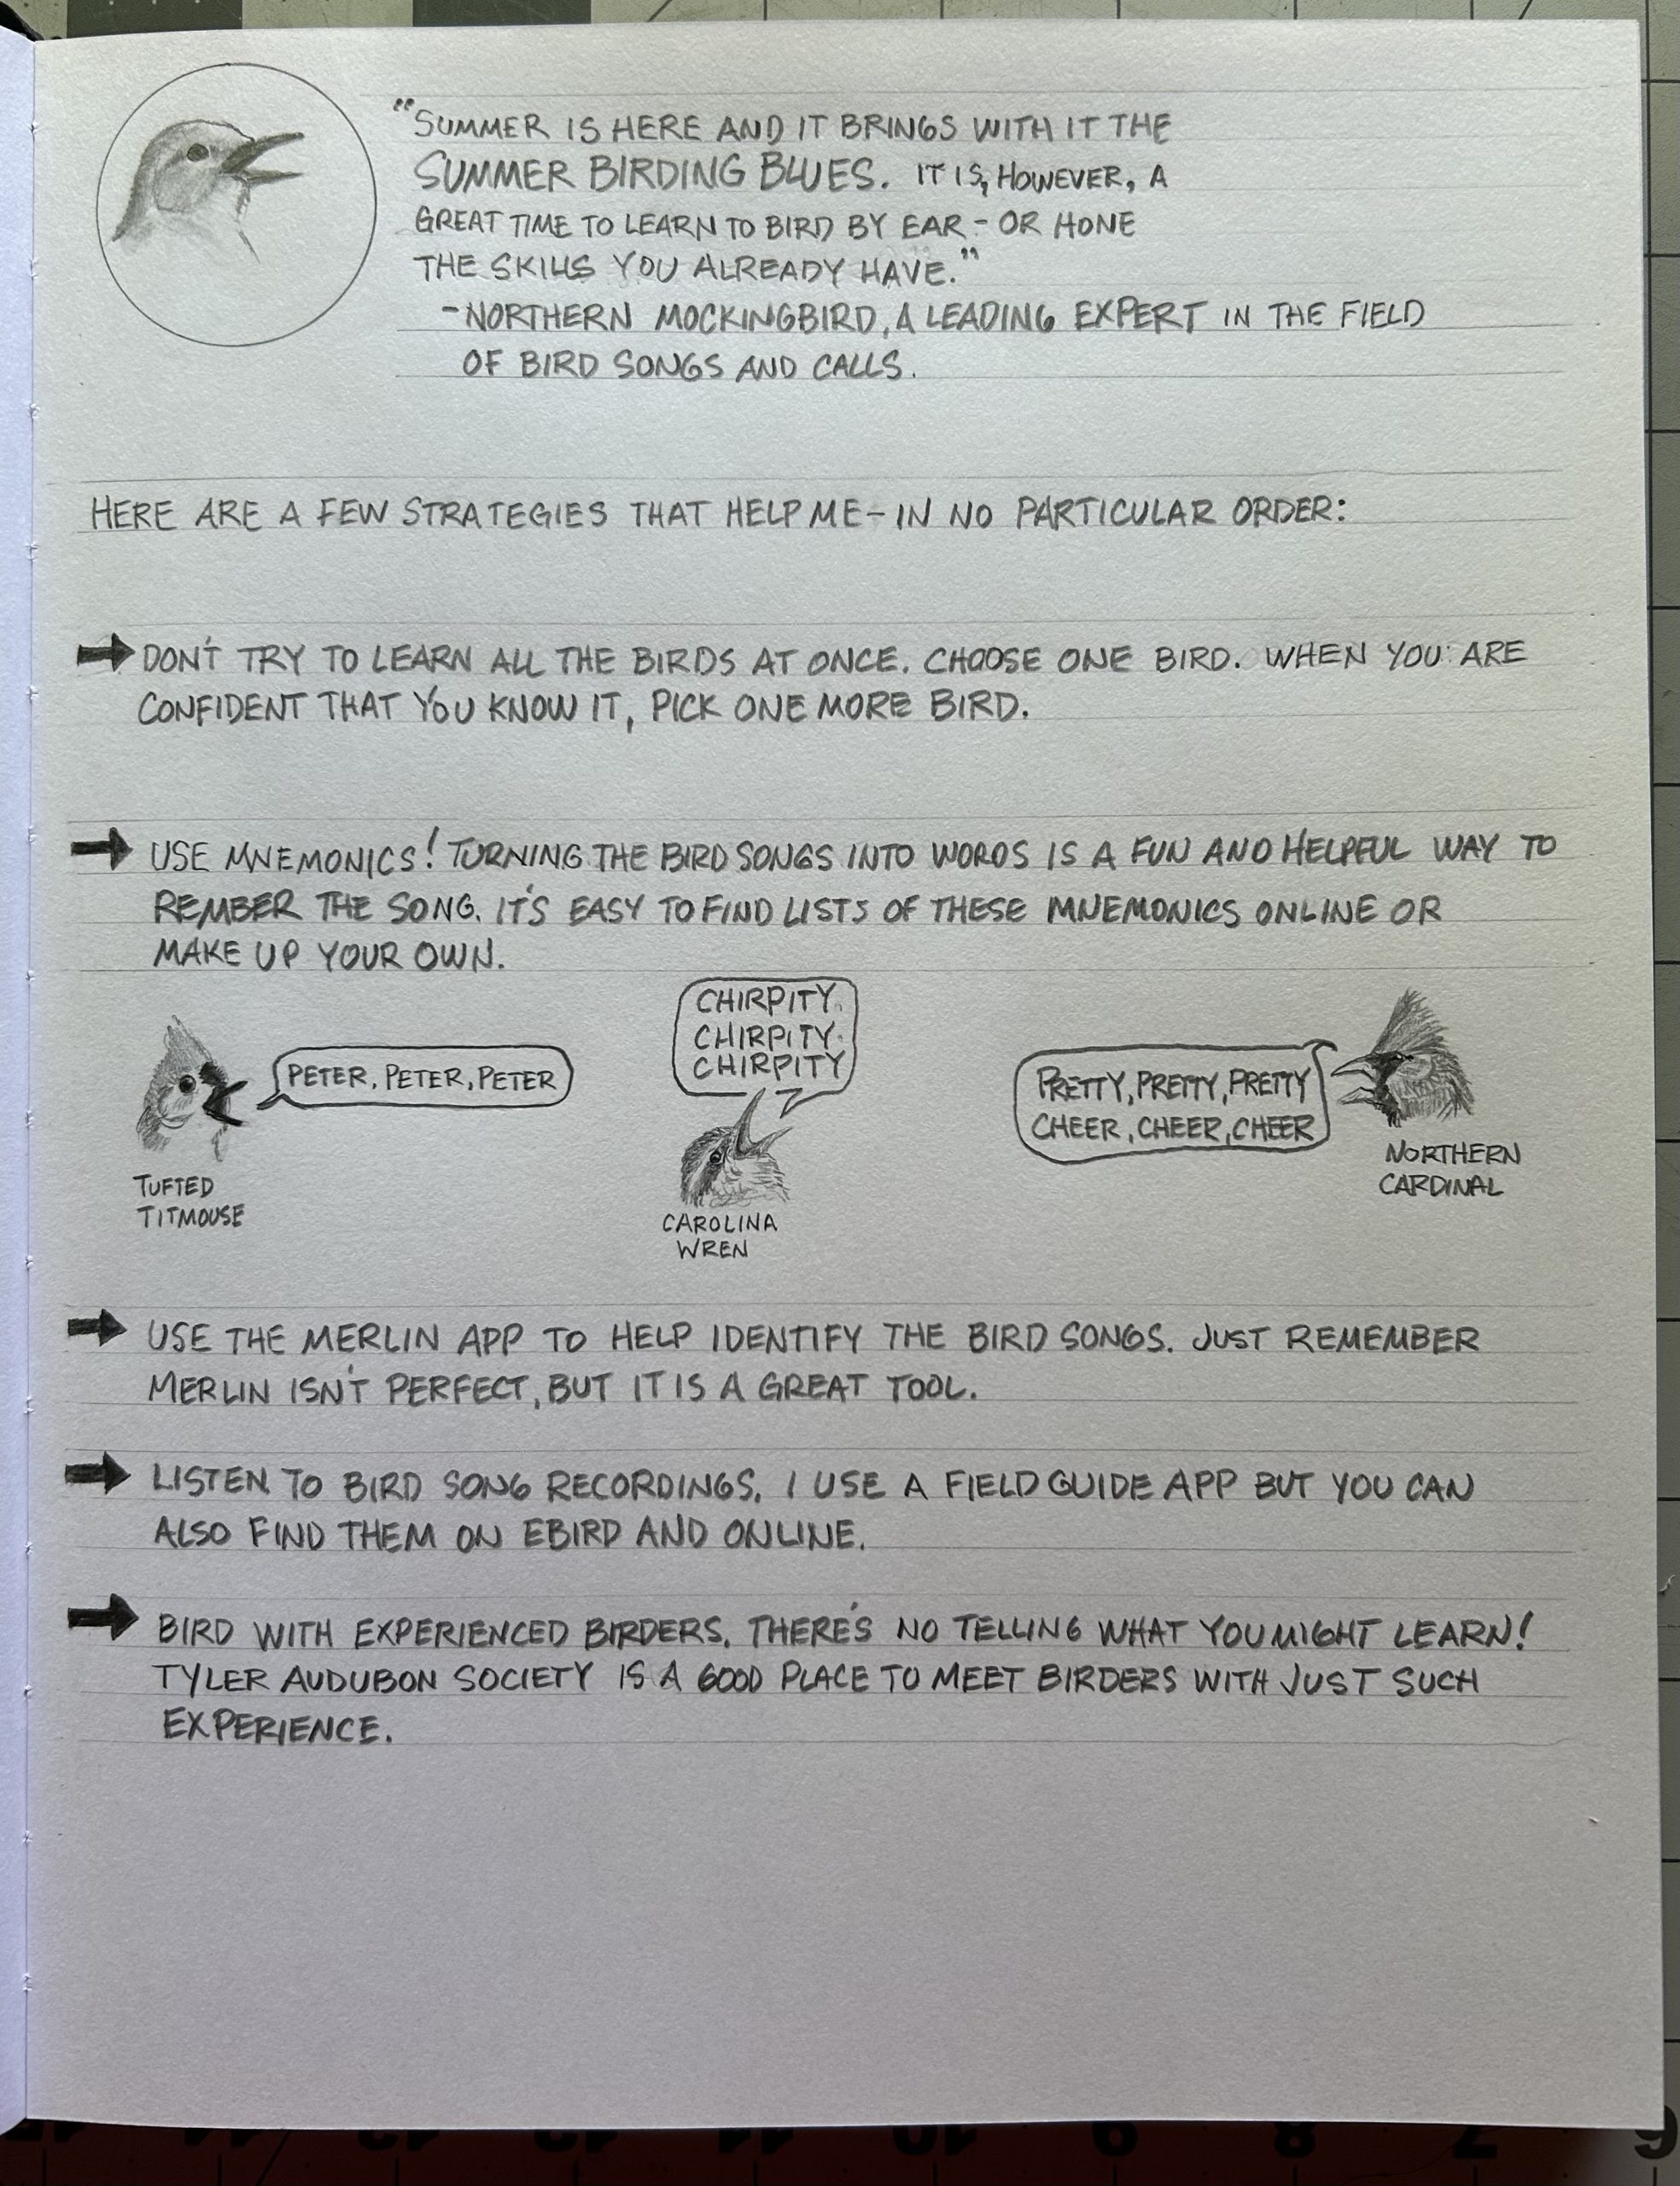 "SUMMER IS HERE AND IT BRINGS WITH IT THE
SUMMER BIRDING BLUES. IT IS, HOWEVER, A
GREAT TIME TO LEARN TO BIRD BY EAR - OR HONE
THE SKILLS YOU ALREADY HAVE."
-NORTHERN MOCKINGBIRD, A LEADING EXPERT IN THE FIELD
OF BIRD SONGS AND CALLS.
HERE ARE A FEW STRATEGIES THAT HELP ME - IN NO PARTICULAR ORDER:
DON'T TRY TO LEARN ALL THE BIRDS AT ONCE. CHOOSE ONE BIRD. WHEN YOU ARE
CONFIDENT THAT YOU KNOW IT, PICK ONE MORE BIRD.
USE MNEMONICS! TURNING THE BIRD SONGS INTO WORDS IS A FUN AND HELPFUL WAY TO
REMBER THE SONG. IT'S EASY TO FIND LISTS OF THESE MNEMONICS ONLINE OR
MAKE UP YOUR OWN.
PETER, PETER, PETER
TUFTED
TITMOUSE
CHIRPITY
CHIRPITY
CHIRPITY
CAROLINA
WREN
PRETTY, PRETTY, PRETTY
CHEER, CHEER, CHEER
NORTHERN
CARDINAL
USE THE MERLIN APP TO HELP IDENTIFY THE BIRD SONGS. JUST REMEMBER
MERLIN ISN'T PERFECT, BUT IT IS A GREAT TOOL.
LISTEN TO BIRD SONG RECORDINGS. I USE A FIELD GUIDE APP BUT YOU CAN
ALSO FIND THEM ON EBIRD AND ONLINE.
BIRD WITH EXPERIENCED BIRDERS. THERE'S NO TELLING WHAT YOU MIGHT LEARN!
TYLER AUDUBON SOCIETY IS A GOOD PLACE TO MEET BIRDERS WITH JUST SUCH
EXPERIENCE.
14 13 12 11 10 9 8 7 6